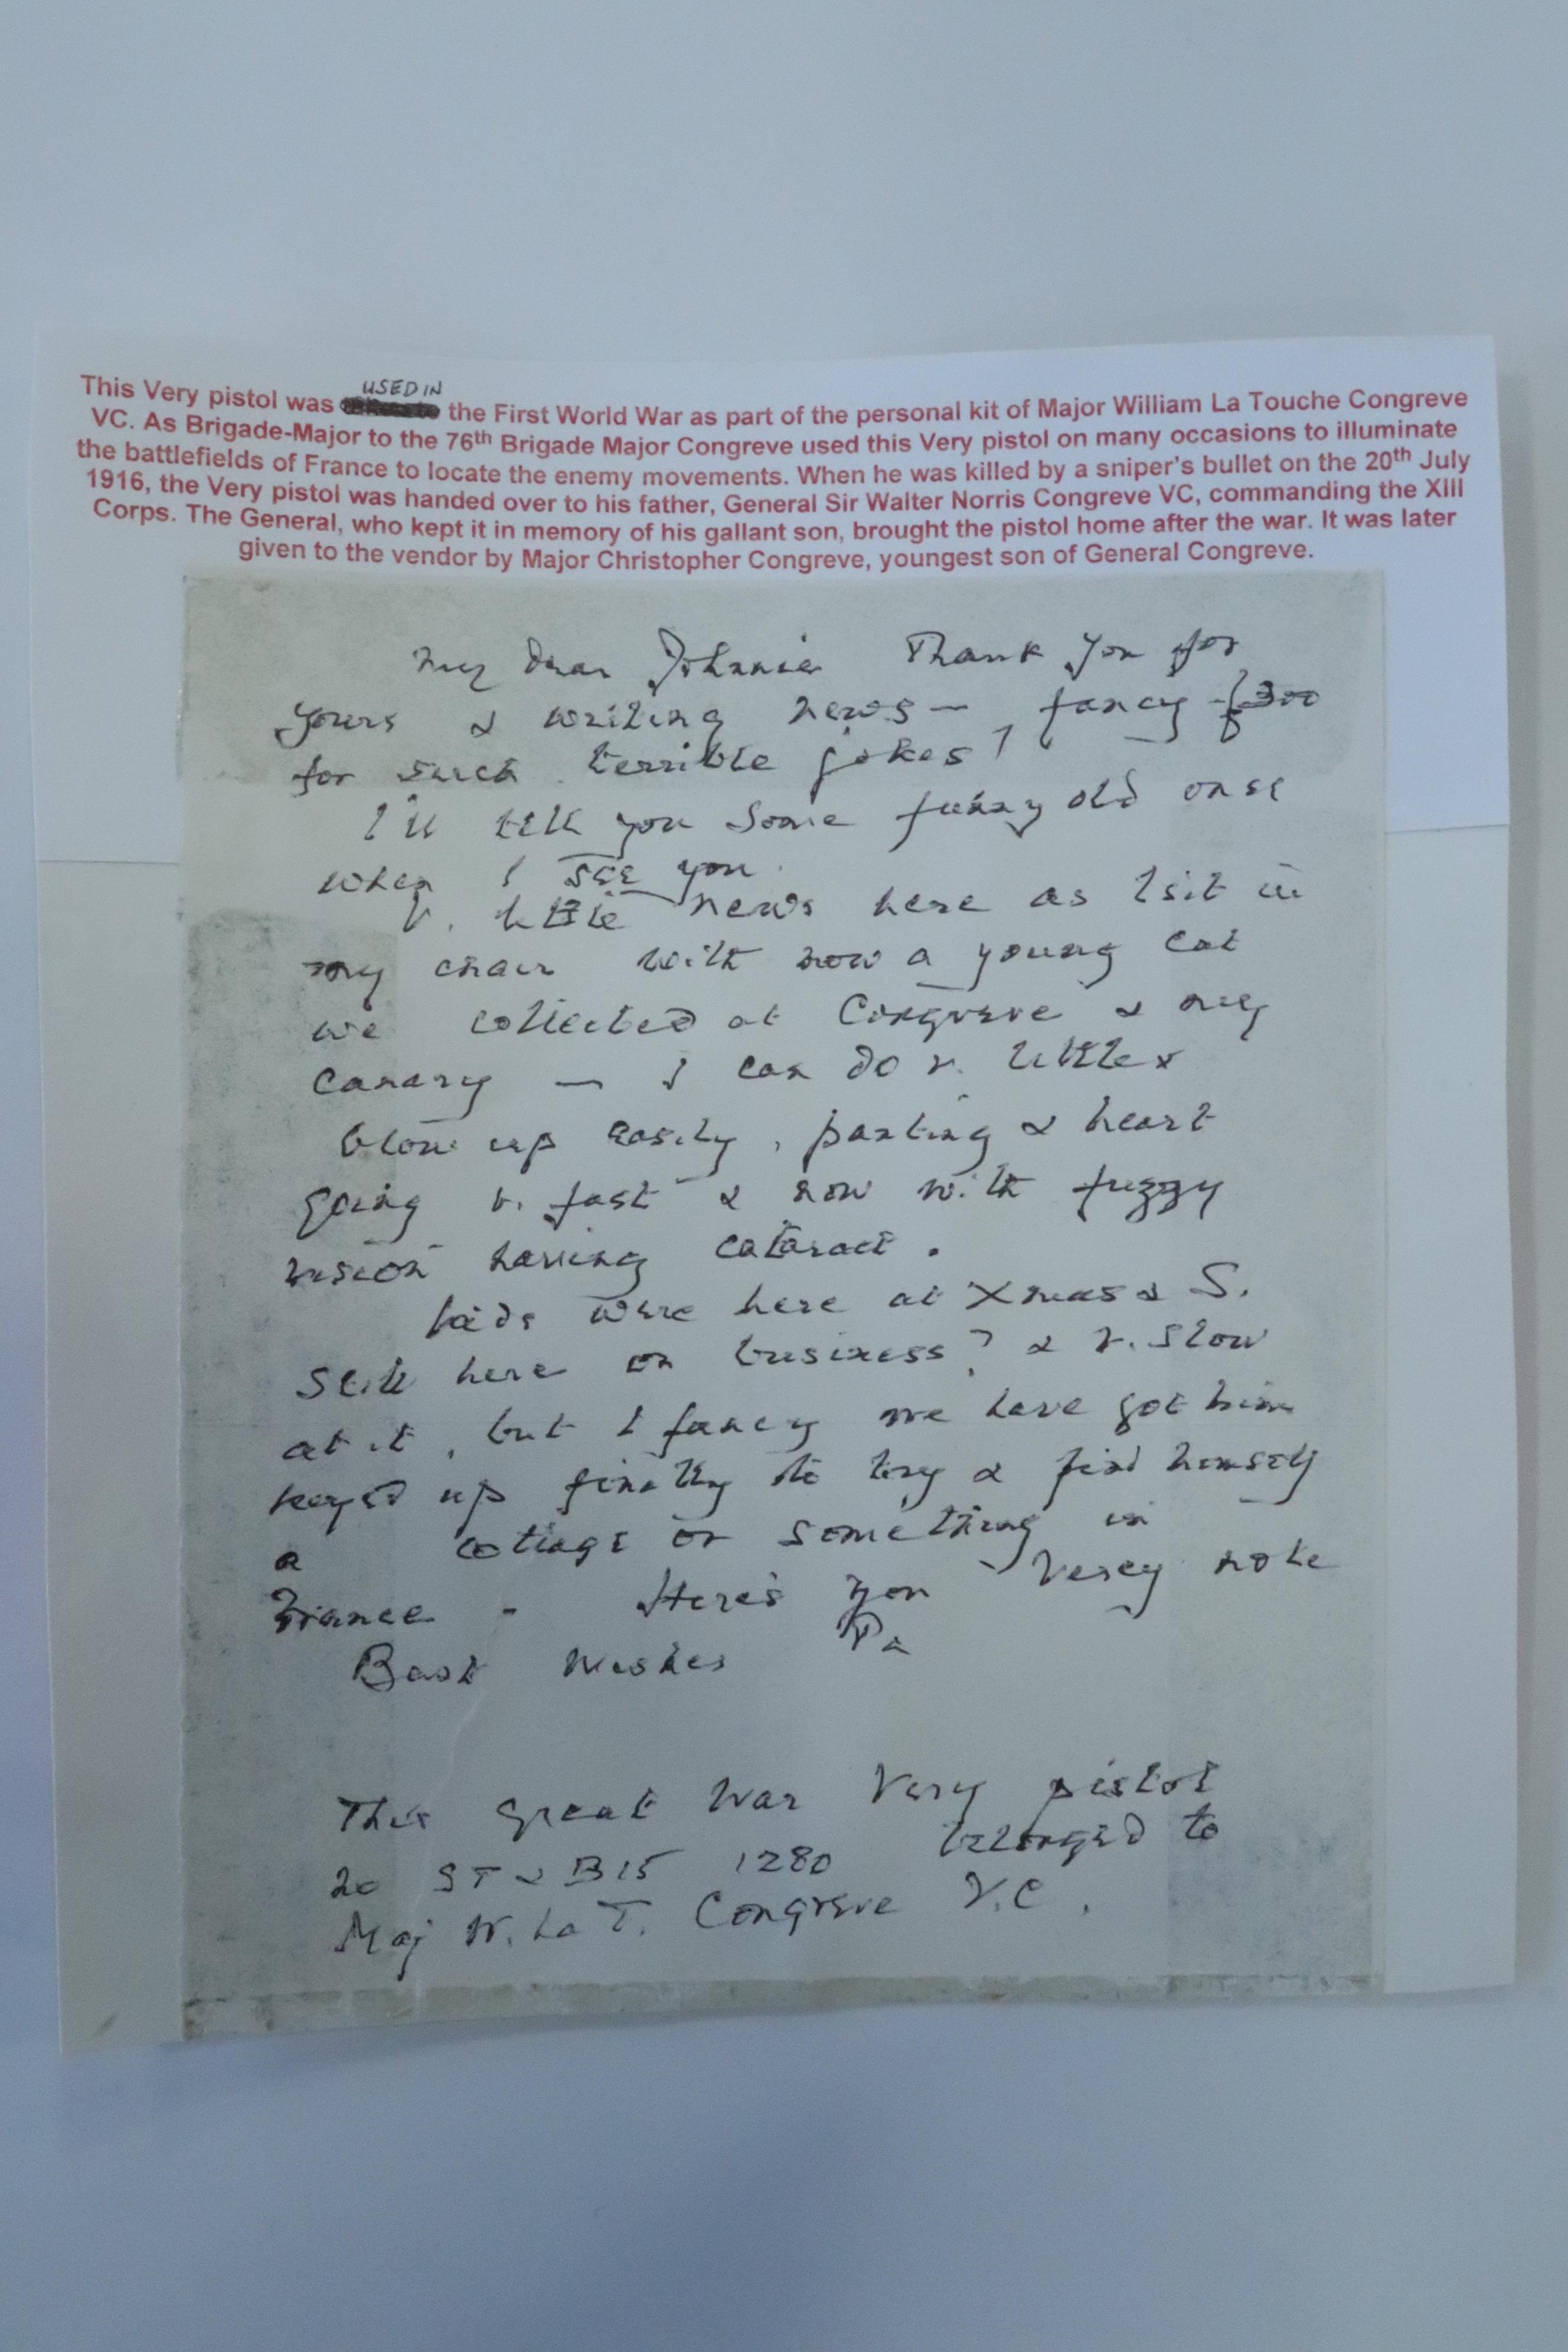 This Very pistol was USED IN the First World War as part of the personal kit of Major William La Touche Congreve
VC. As Brigade-Major to the 76th Brigade Major Congreve used this Very pistol on many occasions to illuminate
the battlefields of France to locate the enemy movements. When he was killed by a sniper's bullet on the 20th July
1916, the Very pistol was handed over to his father, General Sir Walter Norris Congreve VC, commanding the XIII
Corps. The General, who kept it in memory of his gallant son, brought the pistol home after the war. It was later
given to the vendor by Major Christopher Congreve, youngest son of General Congreve.
My dear Johnnie Thank you for
yours & writing news — fancy £300
for such terrible jokes!
I'll tell you some funny old ones
when I see you.
V. little news here as I sit in
my chair with now a young cat
we collected at Congreve & my
canary — I can do v. little &
blow up easily, panting & heart
going v. fast & now with fuzzy
vision having cataract.
kids were here at Xmas & S.
still here on business? & v. slow
at it, but I fancy we have got him
keyed up finally to try & find himself
a cottage or something in
France - Here's you Verey note
Best Wishes Pa
This Great War Very pistol
20 ST & B15 1280 belonged to
Maj W. La T. Congreve V.C.